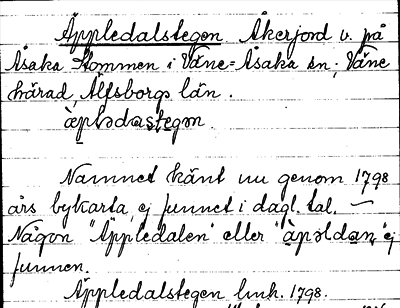 Äppledalstegen Åkerjord v. på
Åsaka Kommen i Väne-Åsaka sn, Väne
härad, Älfsborgs län.
àplədastegən.
Namnet känt nu genom 1798
års bykarta, ej funnet i dagl. tal. —
Någon "Äppledalen" eller "àpəldan" ej
funnen.
Äppledalstegen lmk. 1798.